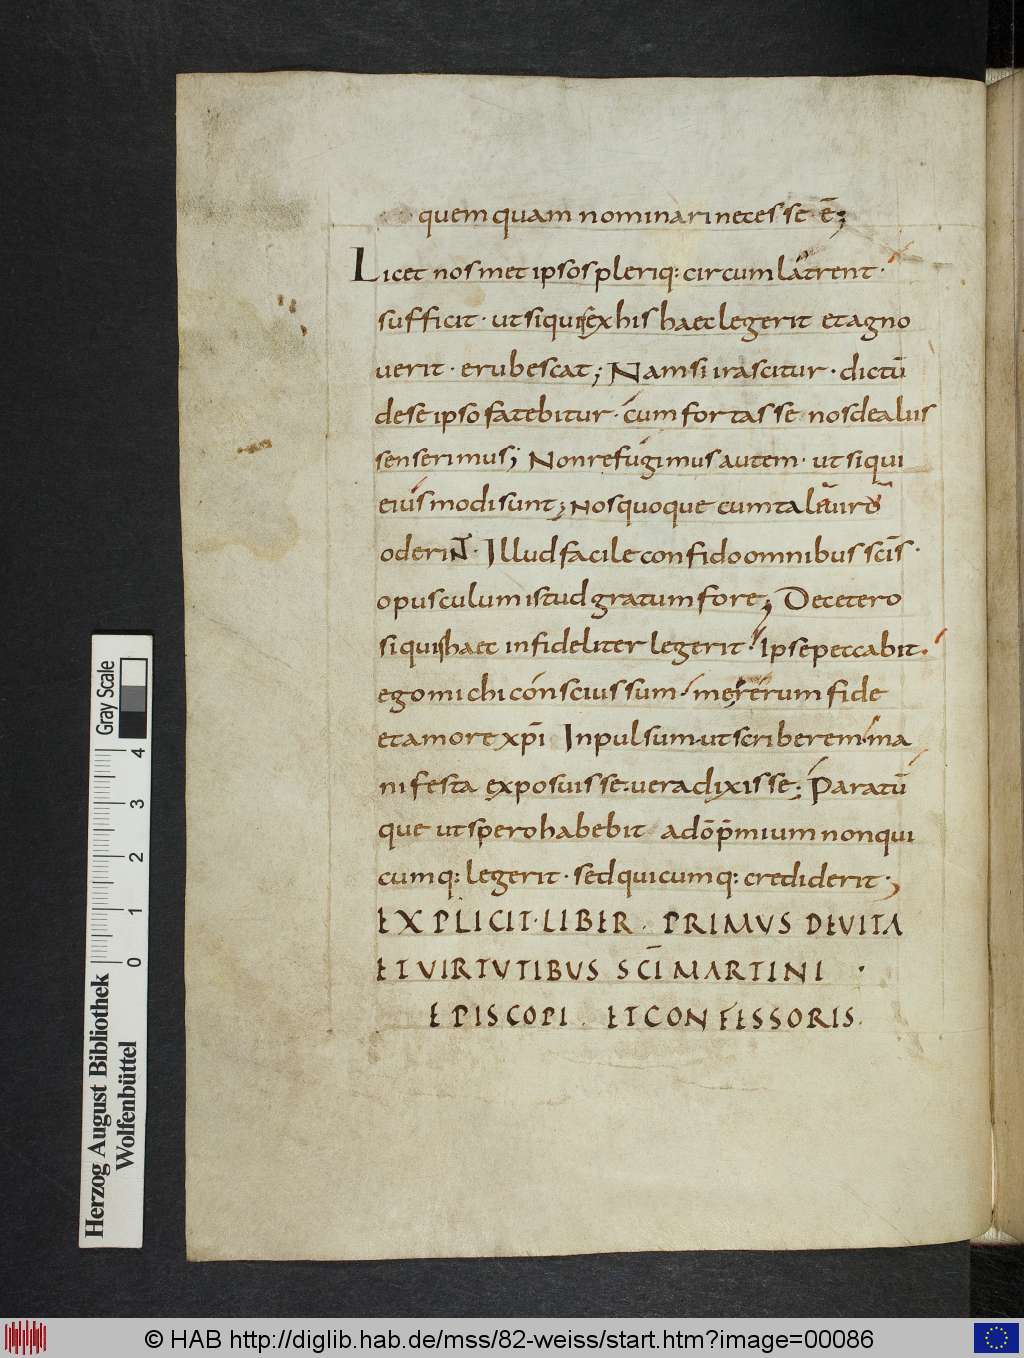 quem quam nominari necesse · ē;
Licet nosmet ipsos pleriq: circum latrent ·
sufficit · ut siquis ex his haec legerit et agno
verit · erubescat; Nam si irascitur · dictū
de se ipso fatebitur · cum fortasse nos de aliis
senserimus; Non refugimus autem · ut siqui
eius modi sunt; Nos quoque cum tali viro
oderiNT · Illud facile confido omnibus scīs ·
opusculum istud gratum fore; De cetero
siquis haec infideliter legerit · Ipse peccabit ·
ego michi conscius sum · me rerum fide
et amore xpī Inpulsum · ut scriberem · ma
nifesta exposuisse · vera dixisse; Paratū
que ut spero habebit a dō p̄mium non qui
cumq: legerit · sed quicumq: crediderit;
EXPLICIT · LIBER · PRIMUS DE VITA
ET VIRTUTIBUS SCĪ MARTINI ·
EPISCOPI · ET CONFESSORIS ·
Gray Scale
0 1 2 3 4
Herzog August Bibliothek
Wolfenbüttel
© HAB http://diglib.hab.de/mss/82-weiss/start.htm?image=00086